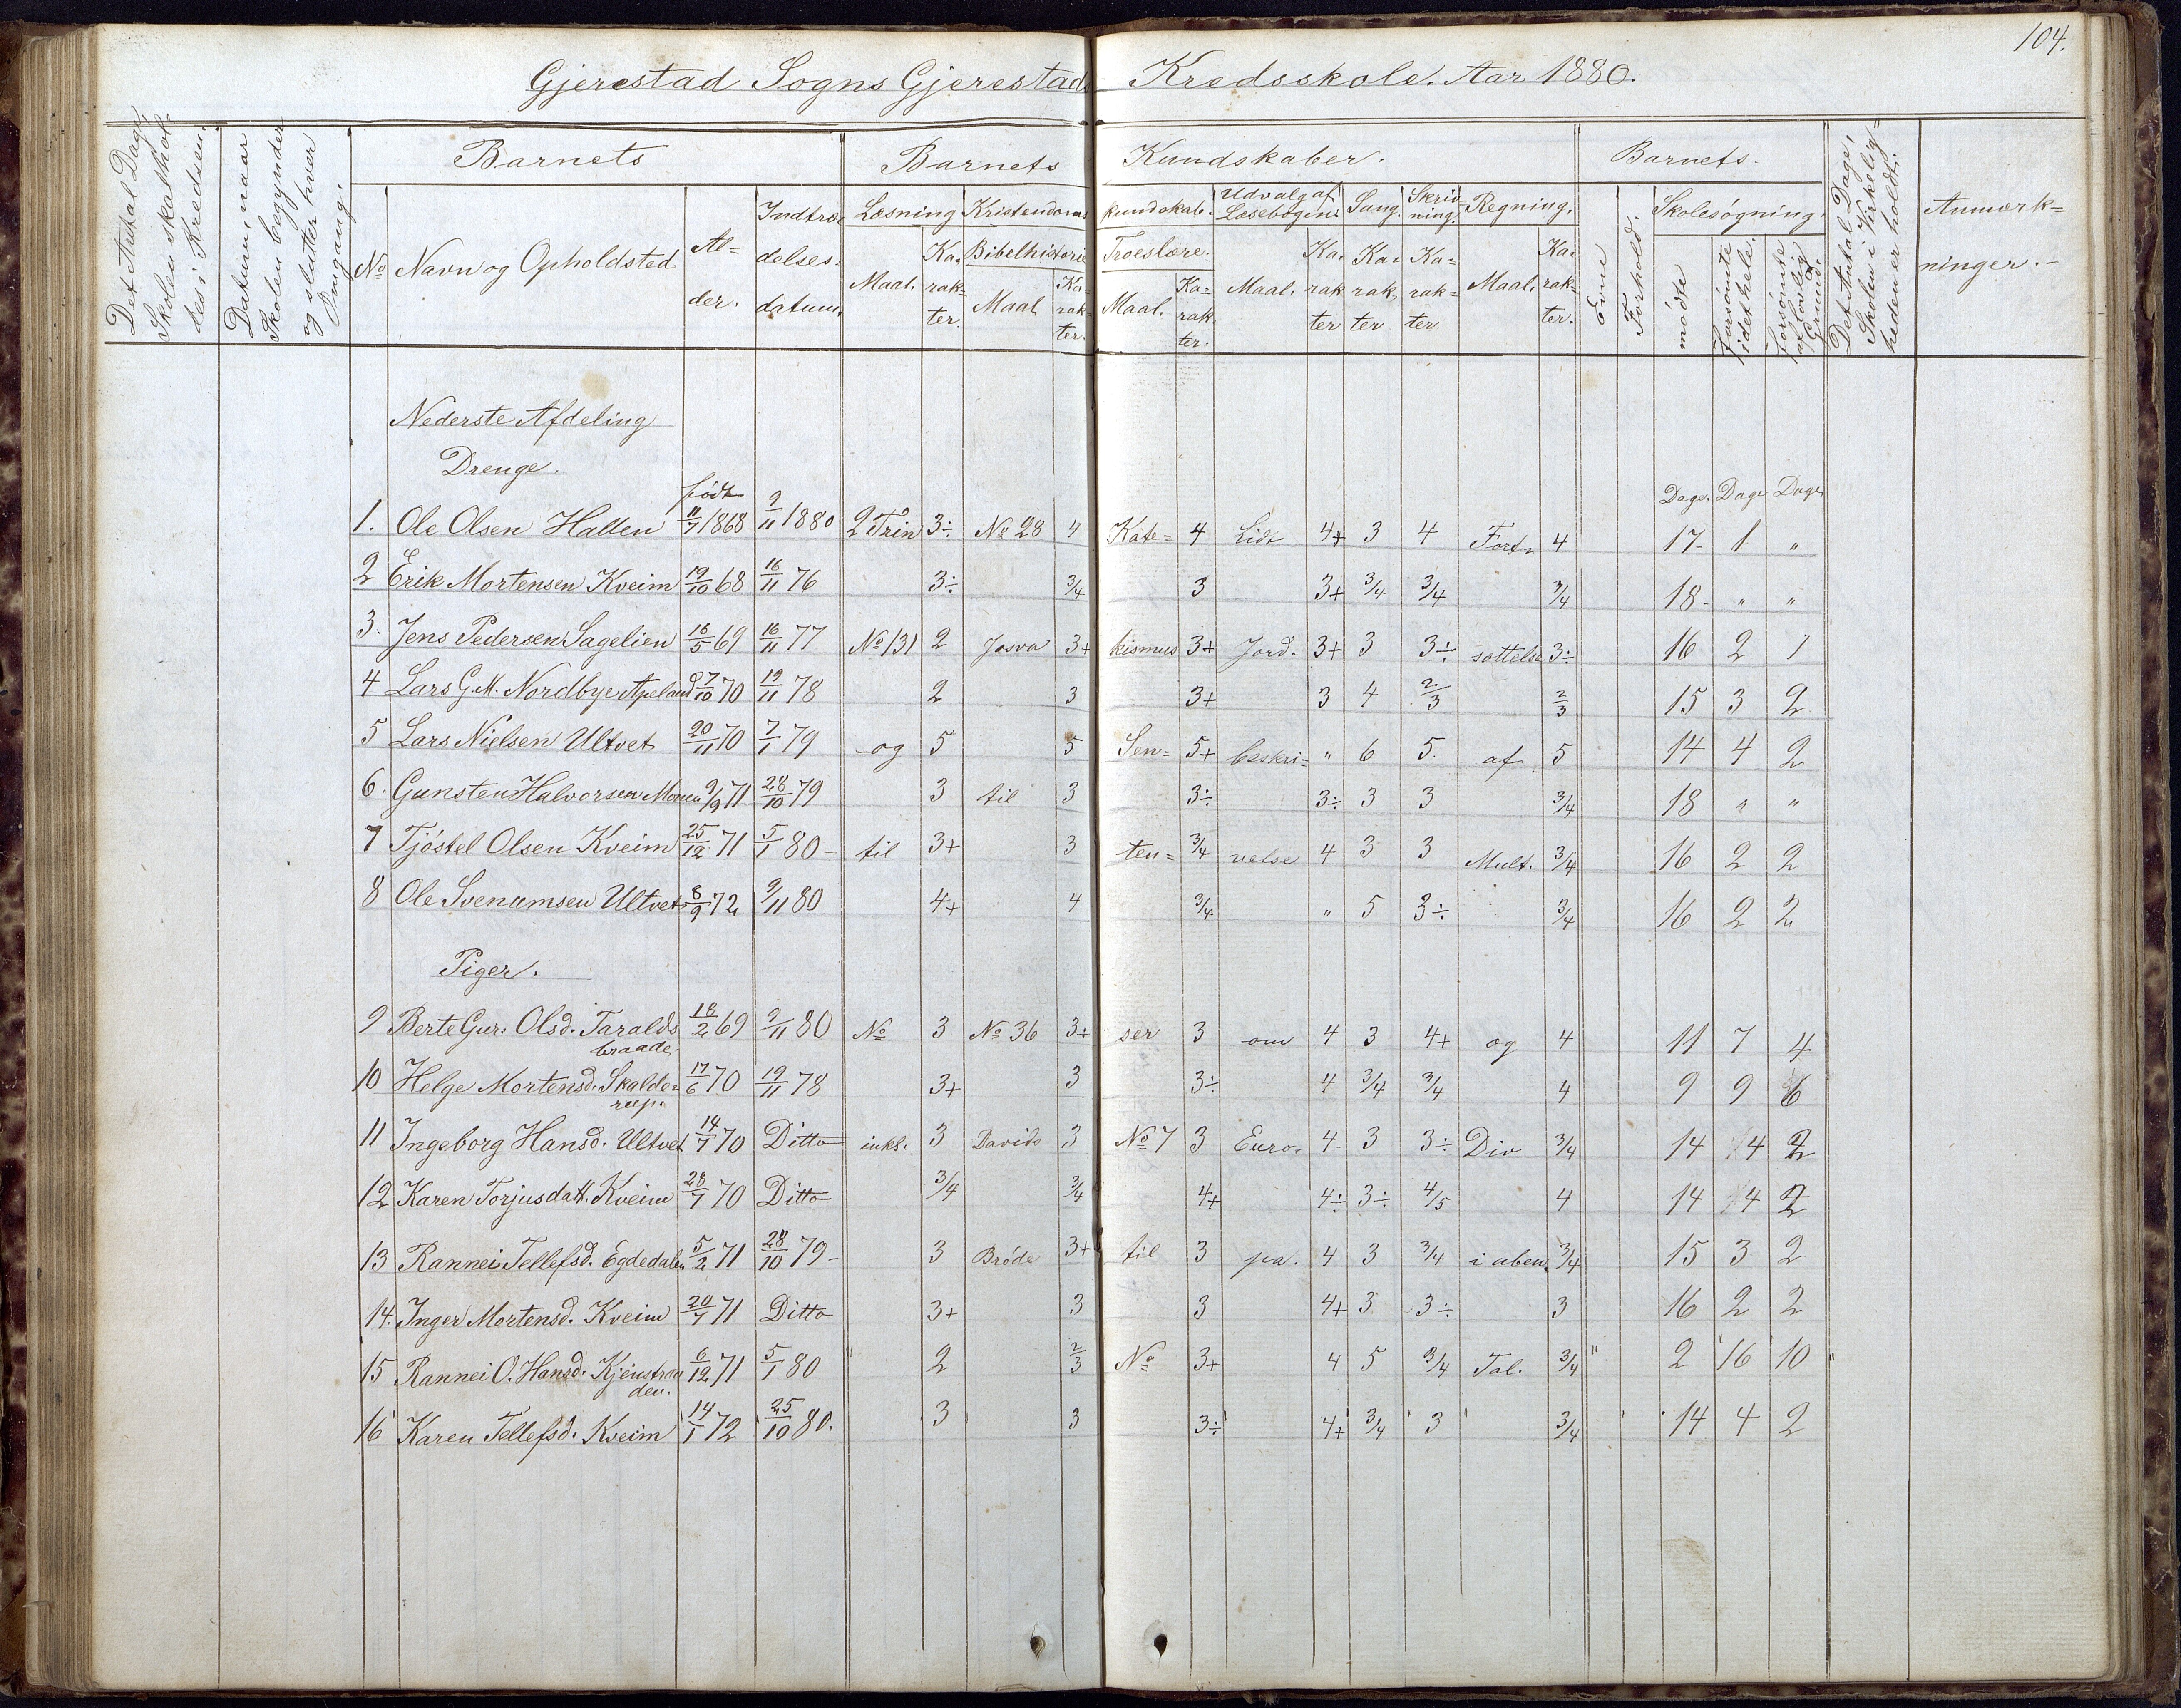 104.
Gjerestad Sogns Gjerestads Kredsskole. Aar 1880.
Det Antal Dage, Skolen skal holdes i Kredsen.
Datum, naar Skolen begynder og slutter hver Omgang.
Barnets
Barnets Kundskaber.
Barnets.
Det Antal Dage, Skolen i Virkeligheden er holdt.
Anmærkninger.-
No Navn og Opholdsted Alder. Indtrædelsesdatum.
Læsning Kristendomskundskab. Udvalg af Læsebogen. Sang. Skrivning. Regning.
Bibelhistorie Troeslære.
Maal. Karakter. Maal Karakter. Maal. Karakter. Maal. Karakter Karakter Karakter Maal. Karakter.
Evne Forhold. Skolesøgning.
mødte forsømte i det hele. forsømte af lovlig Grund.
Nederste Afdeling
Drenge.
født
Dage. Dage Dage
1. Ole Olsen Hallen 11/7 1868 9/11 1880 2 Trin 3÷ No 28 4 Kate= 4 Lidt 4+ 3 4 Forts 4 17- 1 "
2 Erik Mortensen Kveim 19/10 68 16/11 76 3÷ 3/4 3 3+ 3/4 3/4 3/4 18- " "
3. Jens Pedersen Sagelien 16/5 69 16/11 77 No 131 2 Josva 3+ kismus 3+ Jord. 3+ 3 3÷ sættelse 3÷ 16 2 1
4 Lars G. M. Nordbye Apeland 27/10 70 19/11 78 2 3 3+ 3 4 2/3 2/3 15 3 2
5 Lars Nielsen Ultvet 20/11 70 7/1 79 og 5 5 Sen= 5+ beskri= " 6 5. af 5 14 4 2
6. Gunsten Halvorsen Moen 9/9 71 28/10 79 3 til 3 3÷ 3÷ 3 3 3/4 18 " "
7 Tjøstel Olsen Kveim 25/12 71 5/1 80- til 3+ 3 ten= 3/4 velse 4 3 3 Mult. 3/4 16 2 2
8 Ole Svenumsen Ultvet 8/9 72 9/11 80 4+ 4 3/4 " 5 3÷ 3/4 16 2 2
Piger.
9 Berte Gur. Olsd. Taralds 18/2 69 9/11 80 No 3 No 36 3÷ ser 3 om 4 3 4+ og 4 11 7 4
braade.
10 Helge Mortensd. Skalde= 17/6 70 19/11 78 3+ 3 3÷ 4 3/4 3/4 4 9 9 6
rup.
11 Ingeborg Hansd. Ultvet 14/7 70 Ditto inkl. 3 Davids 3 No 7 3 Euro= 4 3 3÷ Div 3/4 14 4 2
12 Karen Torjusdatt. Kveim 28/7 70 Ditto 3/4 3/4 4+ 4÷ 3÷ 4/5 4 14 4 2
13 Rannei Tellefsd. Egdedalen 5/2 71 28/10 79- 3 Brøde 3+ til 3 pa. 4 3 3/4 i uben. 3/4 15 3 2
14. Inger Mortensd. Kveim 20/7 71 Ditto 3+ 3 3 4+ 3 3÷ 3 16 2 2
15 Rannei O. Hansd. Kjenstraa 6/12 71 5/1 80 " 2 2/3 No 3+ 4 5 3/4 Tal. 3/4 " 2 16 10 "
den.
16 Karen Tellefsd. Kveim 14/1 72 25/10 80. 3 3 3÷ 4+ 3/4 3 3/4 14 4 2